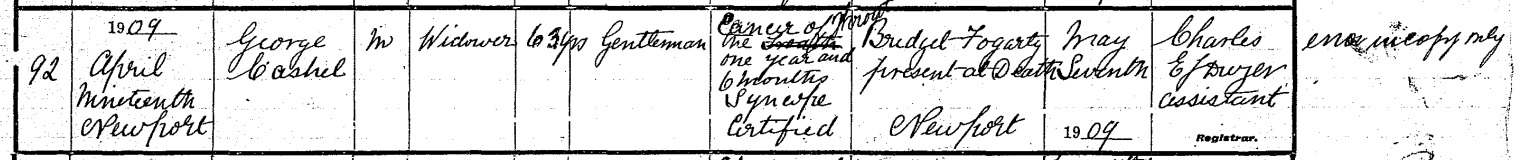 92
1909
April
Nineteenth
Newport
George
Cashel
M
Widower
63yrs
Gentleman
Cancer of Throat
the
one year and
6 months
Syncope
Certified
Bridget Fogarty
present at Death
Newport
May
Seventh
1909
Charles
EJ Dwyer
assistant
Registrar.
error in copy only